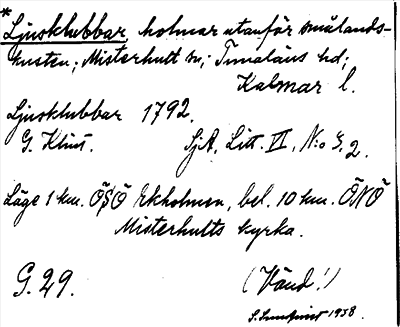 * Ljusklubbar, holmar utanför smålands-
kusten; Misterhult sn; Tunaläns hd;
Kalmar l.
Ljusklubbar 1792.
G. Klint. SjA, Litt. II, N:o 2.
Läge 1 km. ÖSÖ Ekholmen, bel. 10 km. ÖNÖ
Misterhults kyrka.
G. 29. (Vänd!)
S. 1938